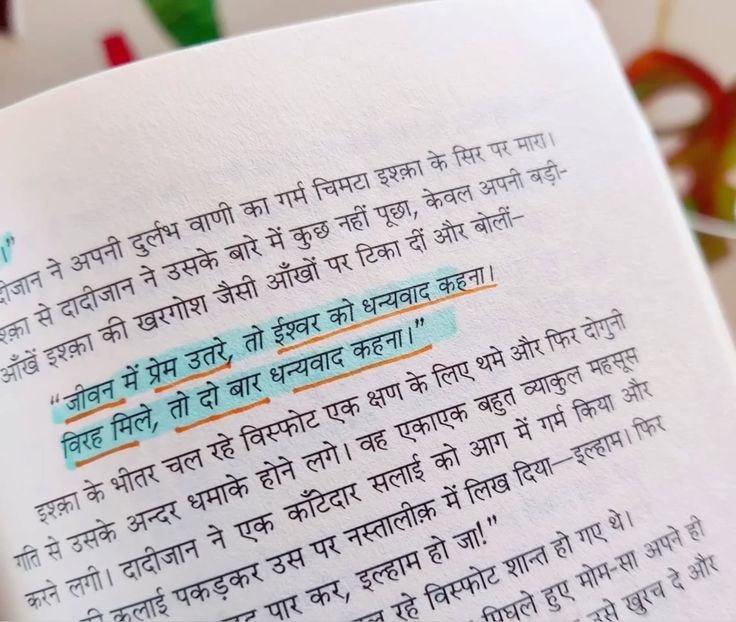 ।”
दीजान ने अपनी दुर्लभ वाणी का गर्म चिमटा इश्क़ा के सिर पर मारा।
श्क़ा से दादीजान ने उसके बारे में कुछ नहीं पूछा, केवल अपनी बड़ी-
आँखें इश्क़ा की खरगोश जैसी आँखों पर टिका दीं और बोलीं–
“जीवन में प्रेम उतरे, तो ईश्वर को धन्यवाद कहना।
विरह मिले, तो दो बार धन्यवाद कहना।”
इश्क़ा के भीतर चल रहे विस्फोट एक क्षण के लिए थमे और फिर दोगुनी
गति से उसके अन्दर धमाके होने लगे। वह एकाएक बहुत व्याकुल महसूस
करने लगी। दादीजान ने एक काँटेदार सलाई को आग में गर्म किया और
कलाई पकड़कर उस पर नस्तालीक़ में लिख दिया—इल्हाम। फिर
पार कर, इल्हाम हो जा!”
रहे विस्फोट शान्त हो गए थे।
पिघले हुए मोम-सा अपने ही
उसे खुरच दे और